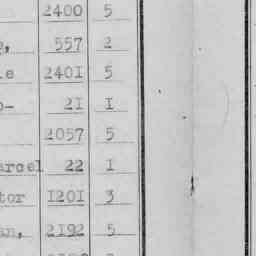 2400 5
557 2
2401 5
21 1
2057 5
arcel 22 1
tor 1201 3
an, 2192 5